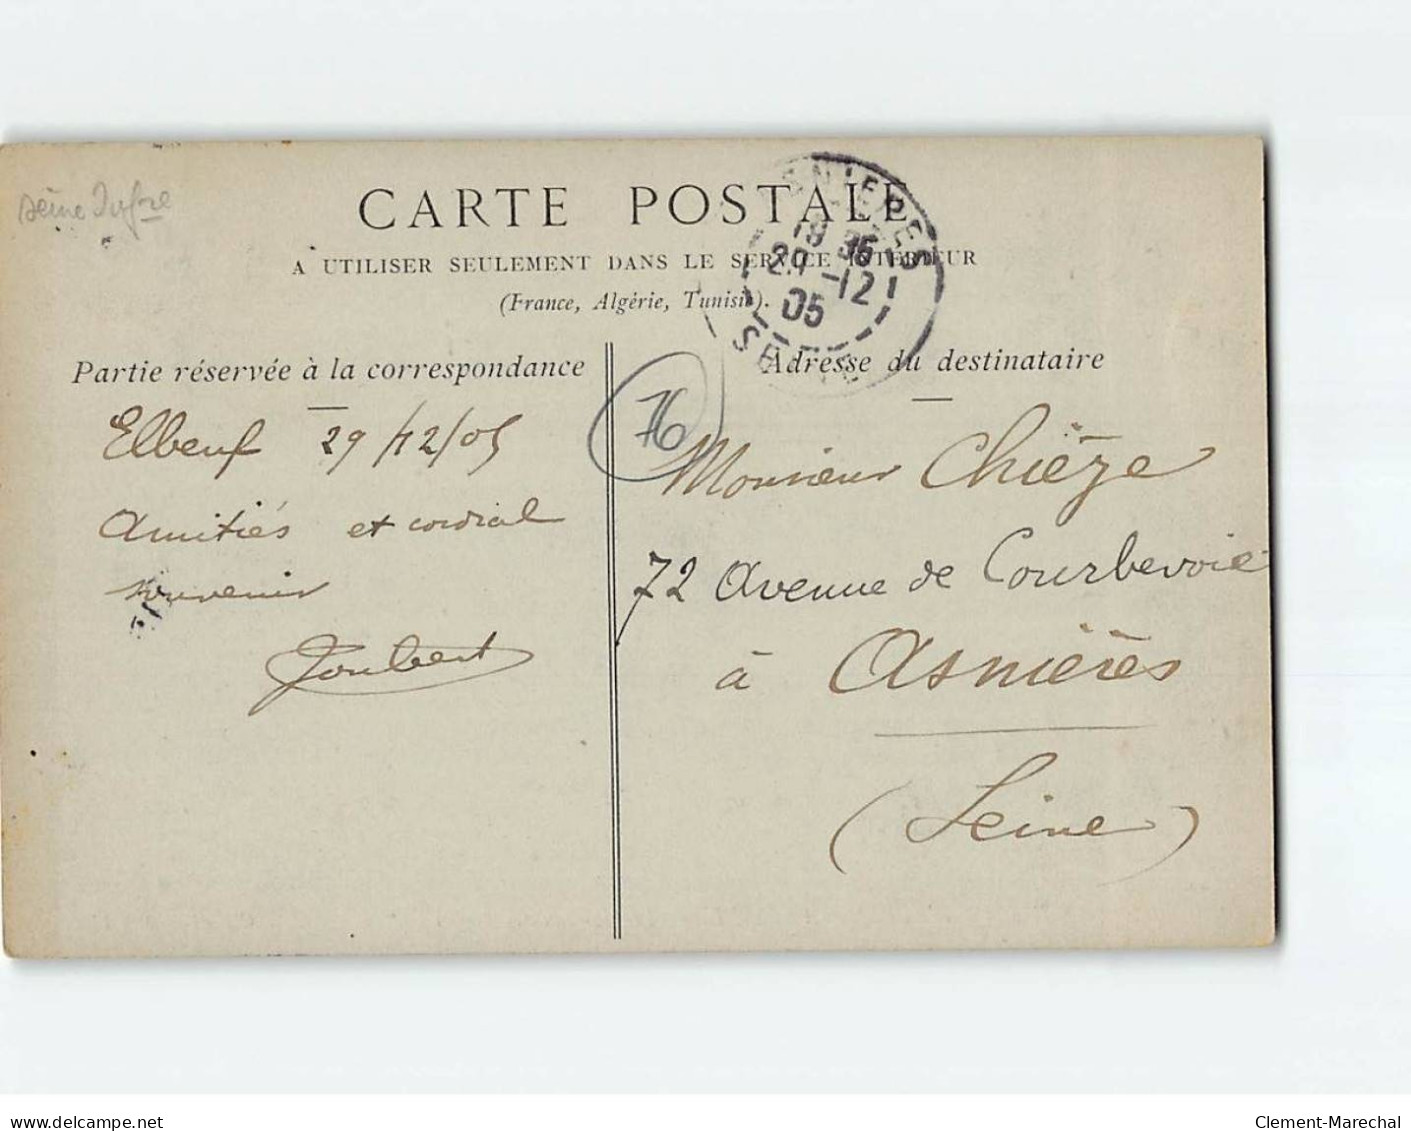 seine Infre
CARTE POSTALE
A UTILISER SEULEMENT DANS LE SERVICE INTÉRIEUR
(France, Algérie, Tunisie).
ASNIERES
19 35
29 -12
05
SEINE
Partie réservée à la correspondance
Elbeuf 29/12/05
Amitiés et cordial
souvenir
Joubert
76
Adresse du destinataire
Monsieur Chièze
72 Avenue de Courbevoie
à Asnières
(Seine)
delcampe.net
Clement-Marechal